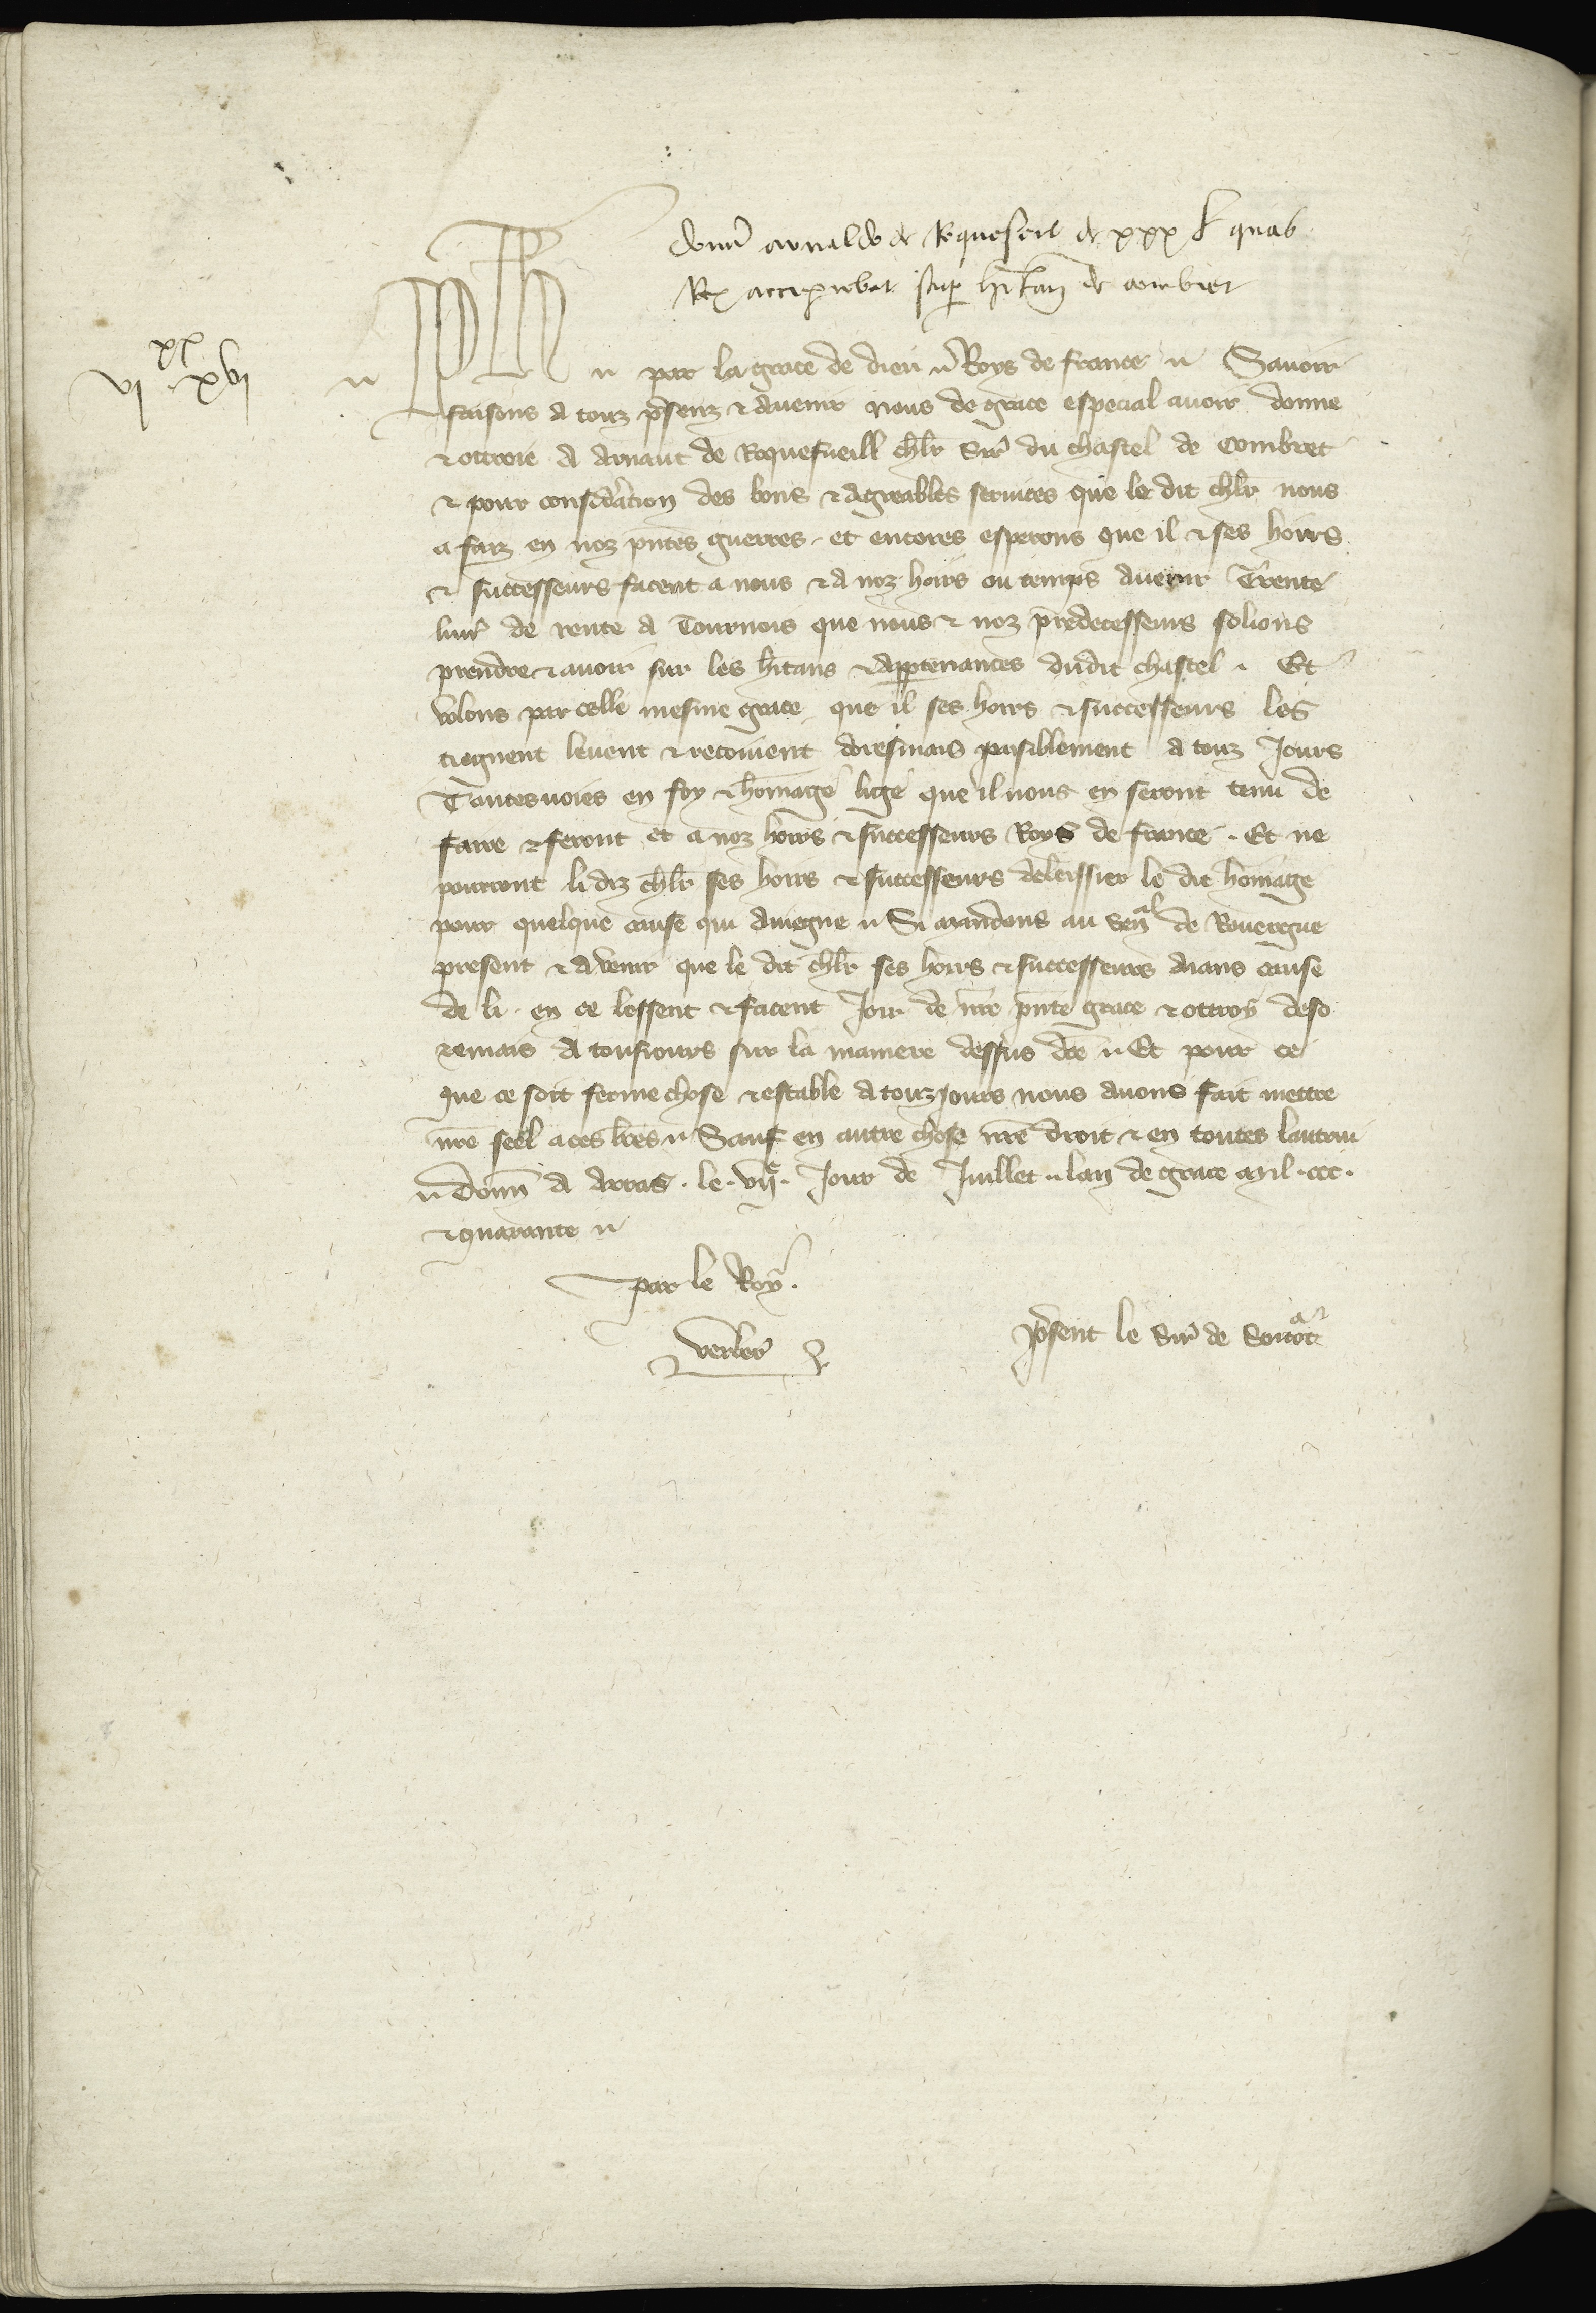 Donum arnaldo de Roquefeil de xxx l quas
Rex accipiebat super hitan de combret
xx
vi xvi
Ph par la grace de dieu Roys de france Savoir
faisons a touz presenz & avenir nous de grace especial avoir donne
& ottroie A Arnaut de Roquefueill chlr Sire du chastel de Combret
& pour consideration des bons & agreables services que le dit chlr nous
a faiz en noz pntes guerres et encores esperons que il & ses hoirs
& successeurs facent a nous & a noz hoirs ou temps avenir Trente
livr de rente a Tournois que nous & noz predecesseurs solions
prendre & avoir sur les hitans & appertenances dudit chastel Et
volons par celle mesme grace que il ses hoirs & successeurs les
tiegnent levent & recoivent doresmais paisiblement a touz Jours
Toutesvoies en foy & homage lige que il nous en seront tenu de
faire & feront et a noz hoirs & successeurs Roys de france . Et ne
pourront li diz chlr ses hoirs & successeurs delaissier le dit homage
pour quelque cause qui aviegne Si mandons au Senal de Rouergue
present & avenir que le dit chlr ses hoirs & successeurs aians cause
de li en ce lessent & facent Joir de nre pnte grace & ottroy deso
remais a tousiours sur la maniere dessus dte Et pour ce
que ce soit ferme chose & estable a touz jours nous avons fait mettre
nre seel a ces lres Sauf en autre chose nre droit & en toutes lautrui
Donn A Arras . le . vije . Jour de Juillet lan de grace Mil . ccc .
& quarante
par le Roy .
present le Sire de
verber